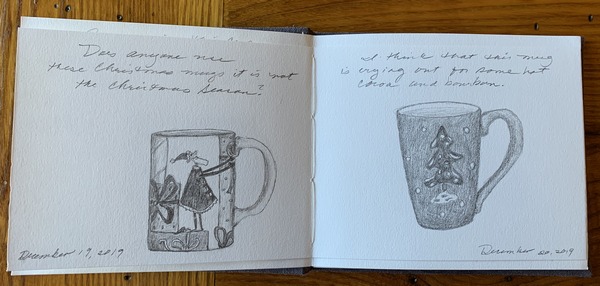 Does anyone use
these Christmas mugs it is not
the Christmas Season?
December 19, 2019
I think that this mug
is crying out for some hot
cocoa and bourbon.
December 20, 2019